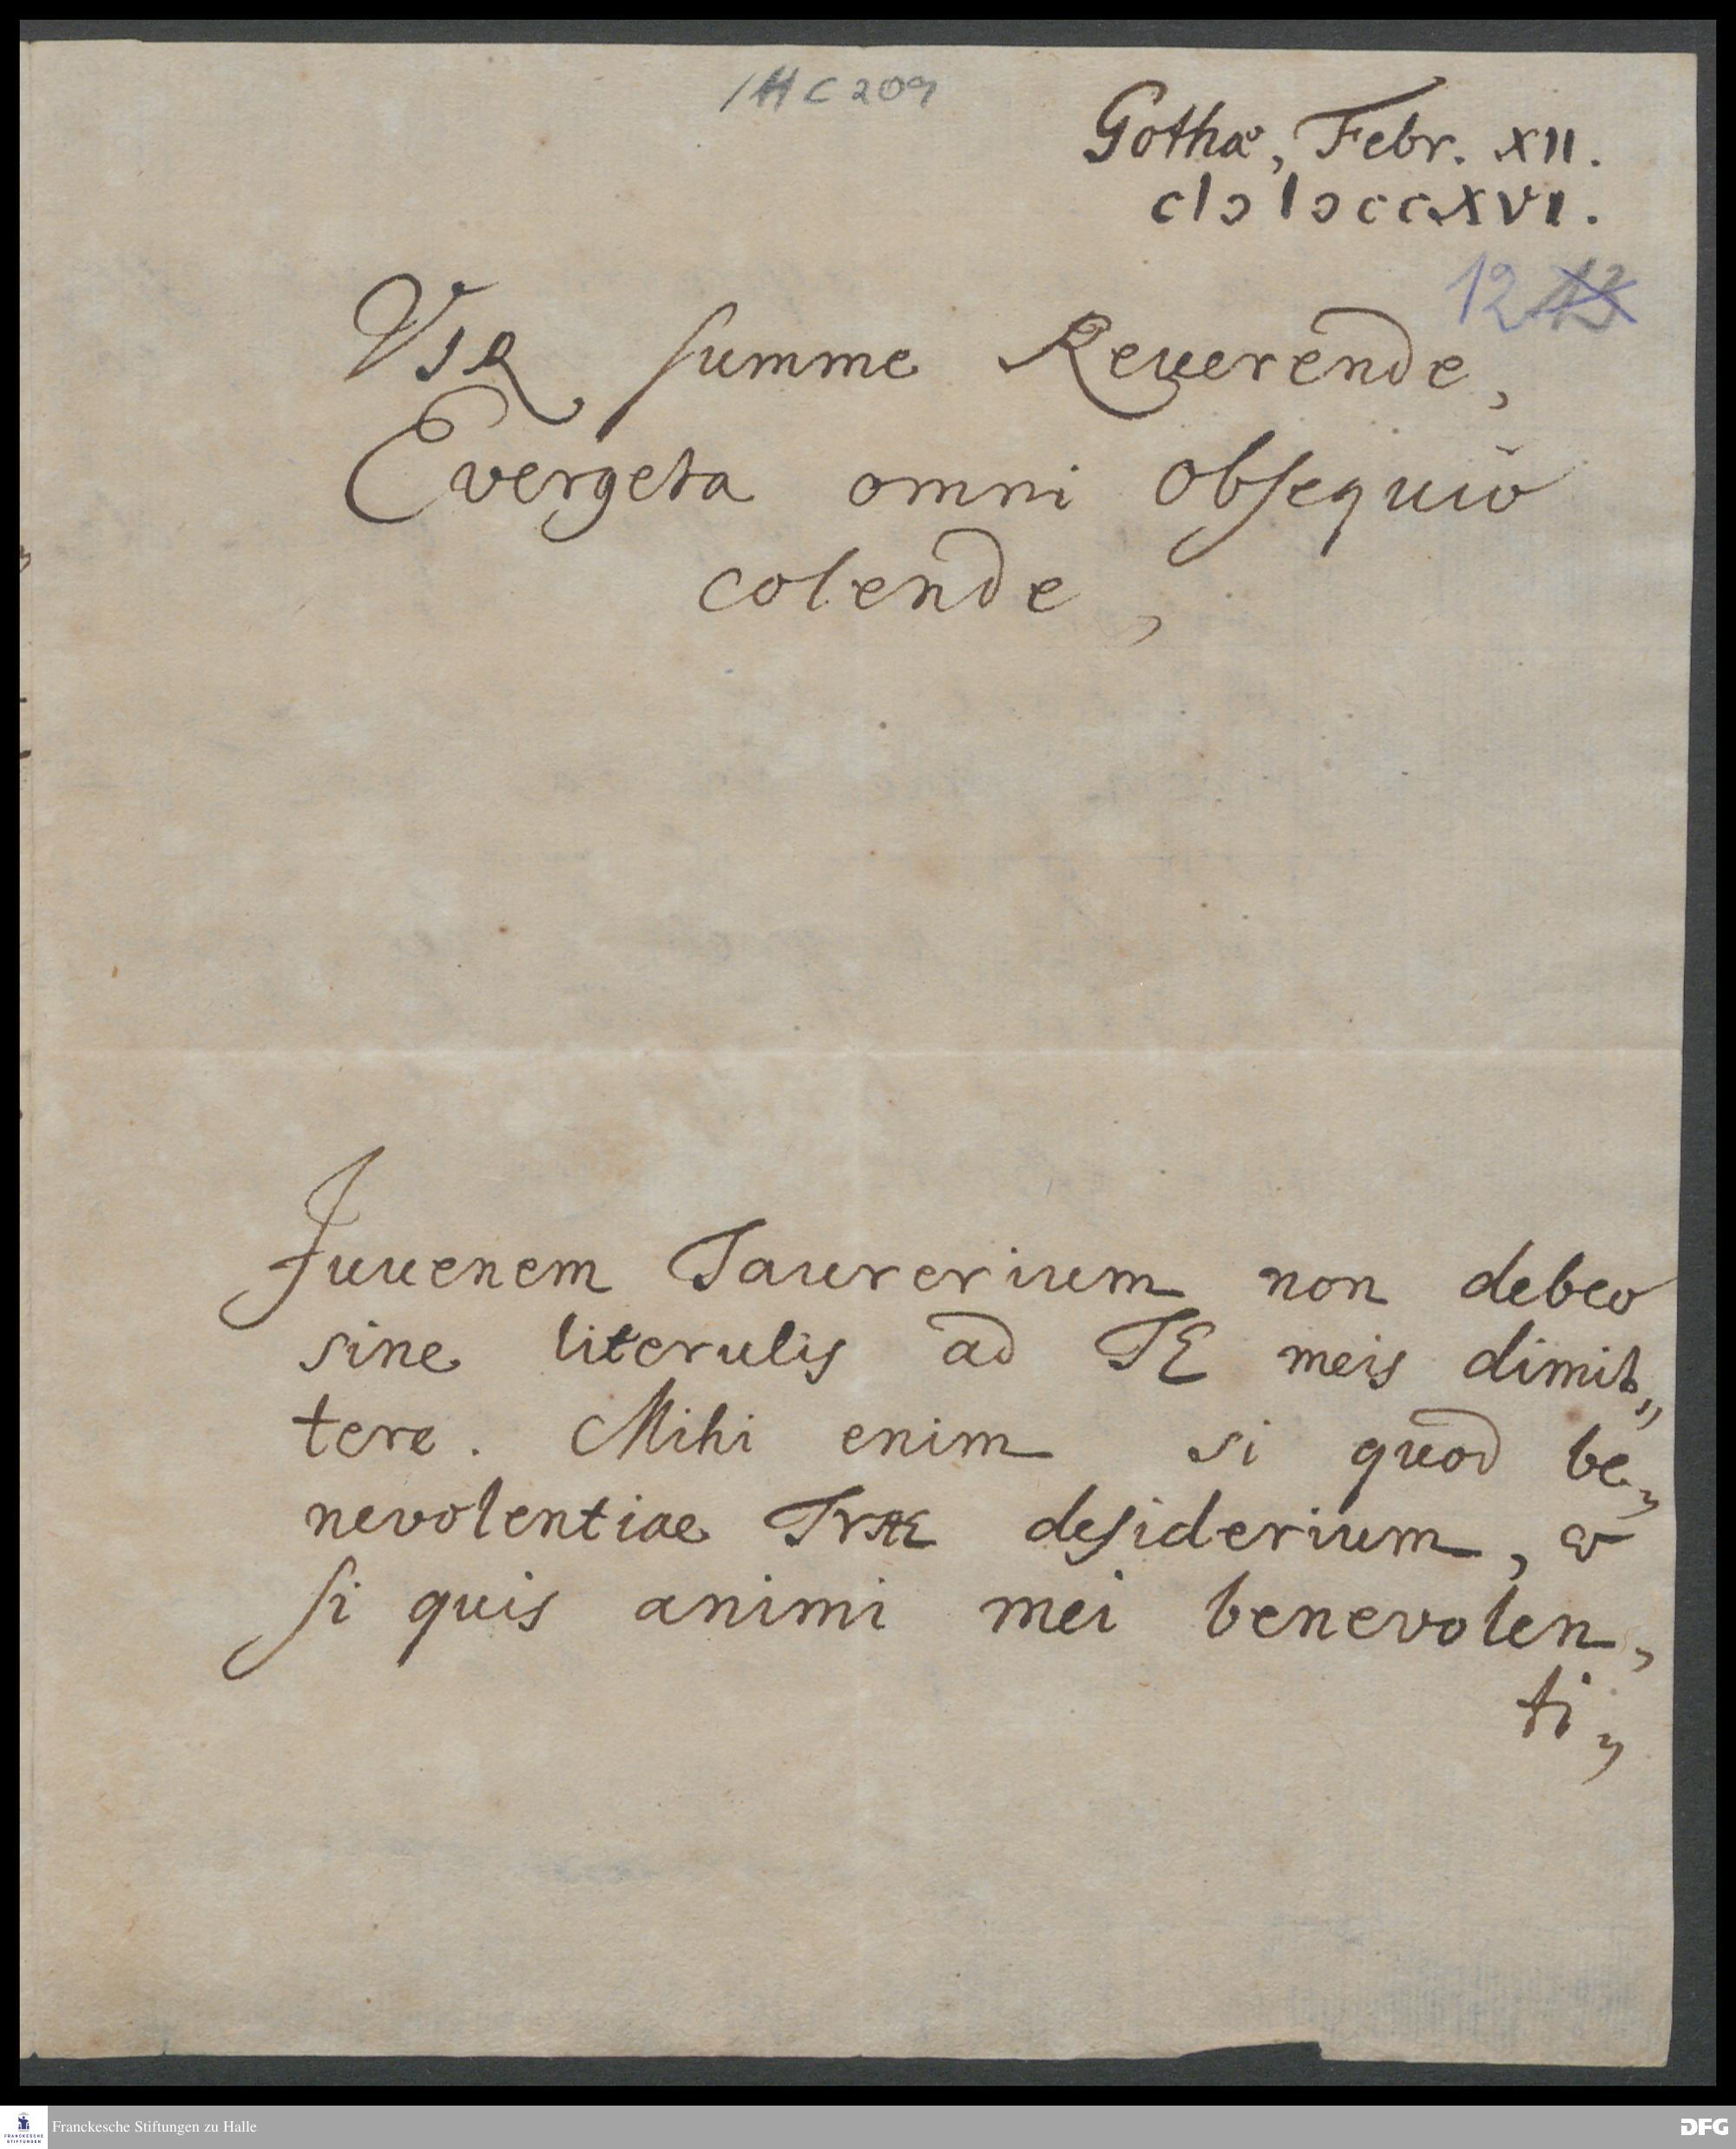 1 H C 209
Gothae, Febr. XII.
cIↄ Iↄ ccXVI.
12
VIR summe Reuerende,
Evergeta omni obsequio
colende,
Juuenem Taurerium non debeo
sine literulis ad TE meis dimit„
tere. Mihi enim si quod be„
nevolentiae TVAE desiderium, &
si quis animi mei benevolen„
ti„
Franckesche Stiftungen zu Halle
FRANCKESCHE
STIFTUNGEN
DFG